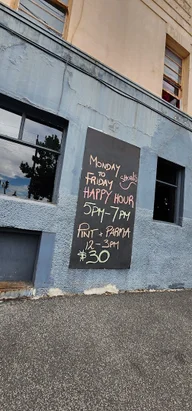 MONDAY
TO
FRIDAY
specials
HAPPY HOUR
5PM-7PM
PINT + PARMA
12-3PM
$30